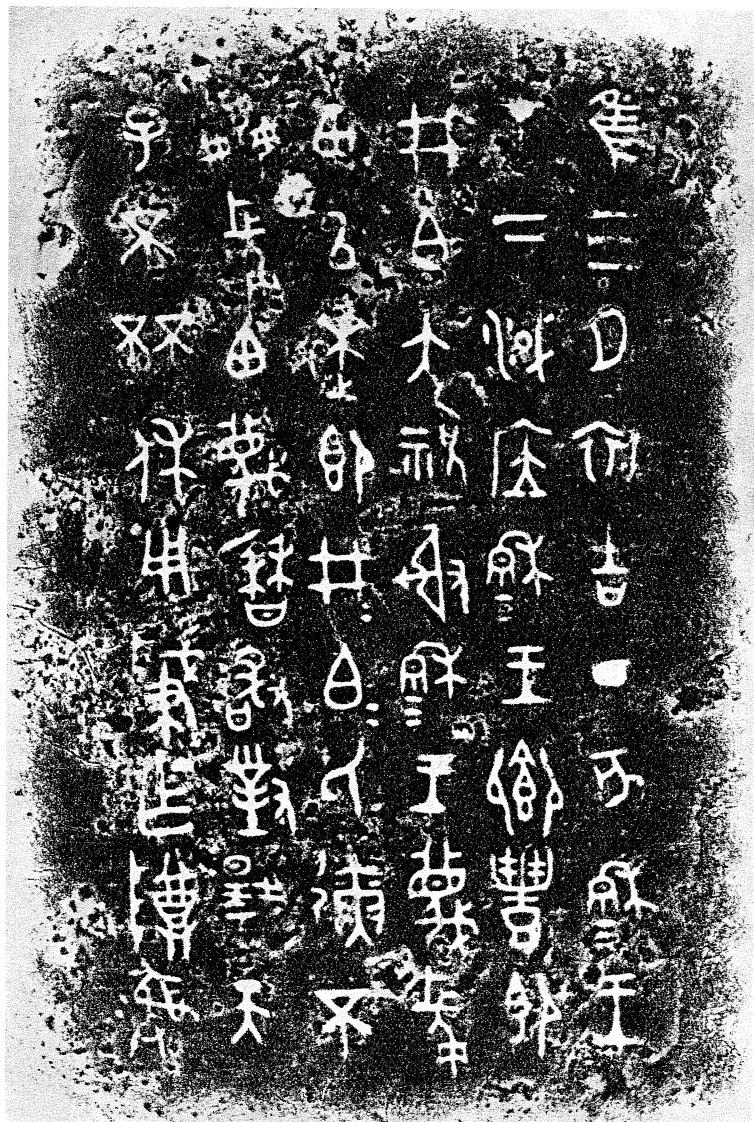 隹三月初吉丁亥穆王
才下淢应穆王鄉豊即
井白大祝射穆王蔑長
甶以逨即井=白=氏彌不
姦長甶蔑曆敢對揚天
子不𣏱休用肇乍尊彝